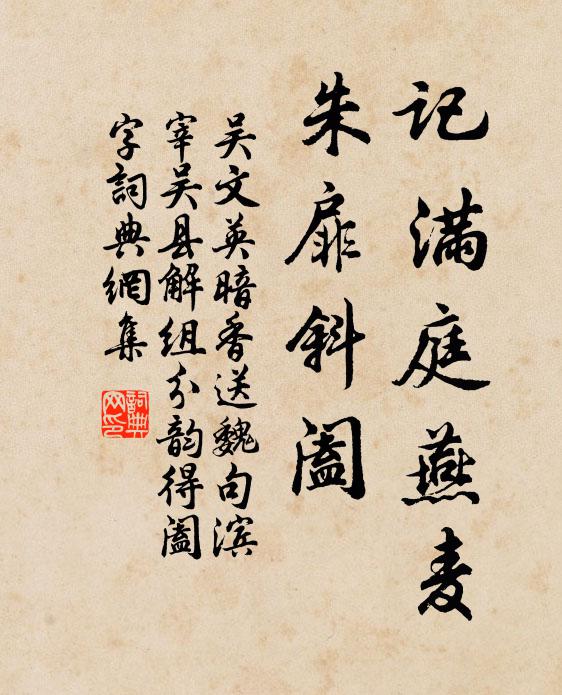 记满庭燕麦
朱扉斜阖
吴文英暗香送魏句滨
宰吴县解组分韵得阖
字詞典網集
詞典
网印